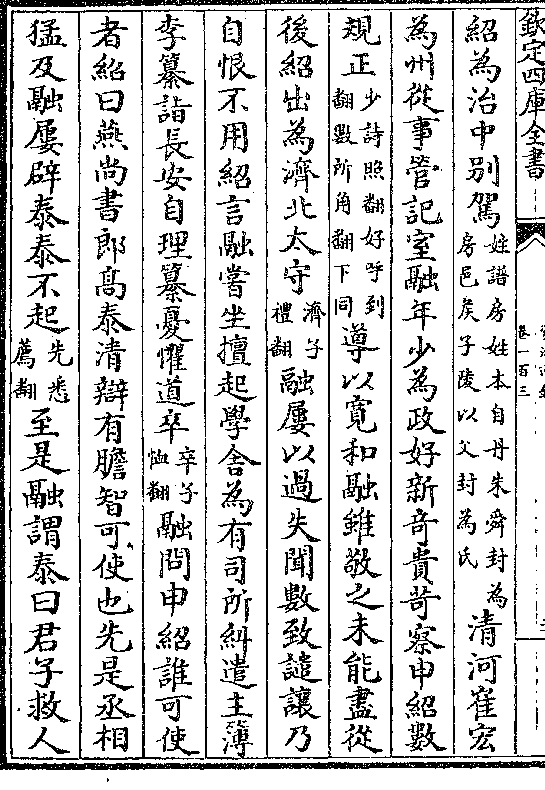 欽定四庫全書
卷一百三
紹為治中别駕姓譜房姓本自丹朱舜封為房邑矦子陵以父封為氏清河崔宏
為州從事管記室融年少為政好新竒貴苛察申紹數
規正少詩照翻好呼到翻數所角翻下同導以寛和融雖敬之未能盡從
後紹出為濟北太守濟子禮翻融屢以過失聞數致譴讓乃
自恨不用紹言融嘗坐擅起學舍為有司所糾遣主簿
李纂詣長安自理纂憂懼道卒卒子恤翻融問申紹誰可使
者紹曰燕尚書郎髙泰清辯有膽智可使也先是丞相
猛及融屢辟泰泰不起先悉薦翻至是融謂泰曰君子救人